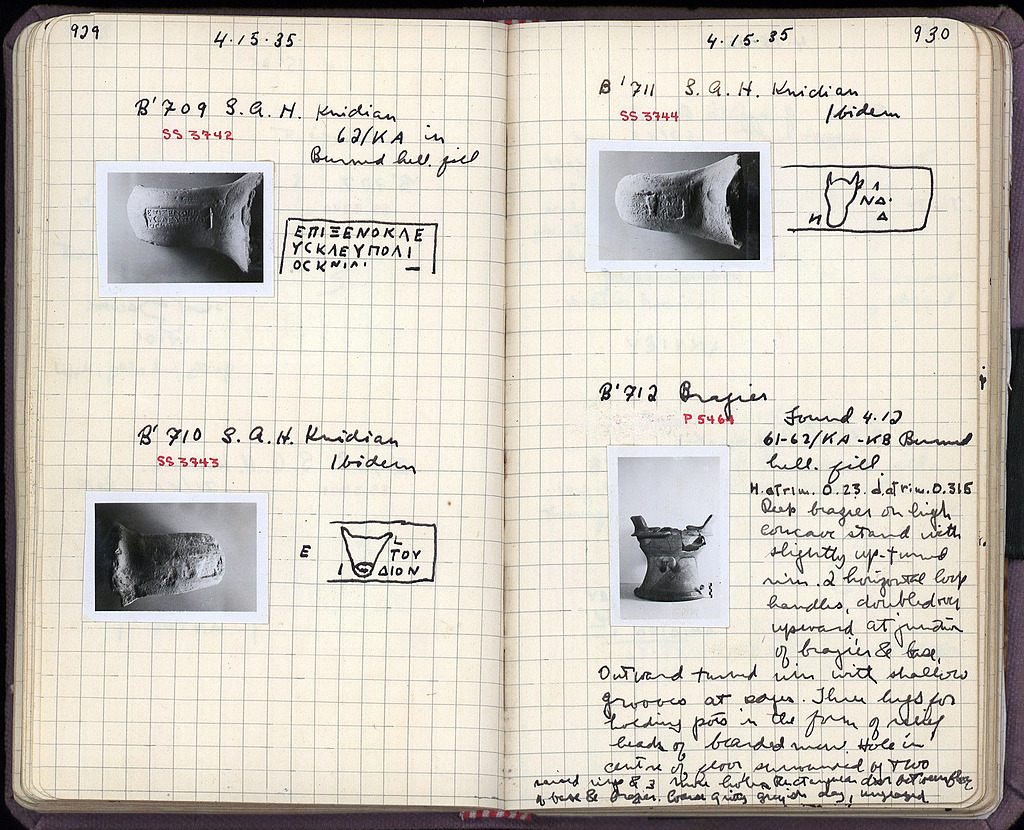 929
4·15·35
B' 709 S.A.H. Knidian
SS 3742
62/KA in
Burned hell. fill
ΕΠΙΞΕΝΟΚΛΕ
ΥϹΚΛΕΥΠΟΛΙ
ΟϹ ΚΝΙΔΙ
B' 710 S.A.H. Knidian
SS 3743
Ibidem
Ε
L
ΤΟΥ
Ι ΔΙΟΝ
4·15·35
930
B' 711 S.A.H. Knidian
SS 3744
Ibidem
ΝΔ·
Ν Δ
B' 712 Brazier
P 5464
Found 4·12
61-62/KA-KB Burned
hell. fill.
H. at rim. 0.23. d. at rim. 0.315
Deep brazier on high
concave stand with
slightly up-turned
rim. 2 horizontal loop
handles, doubled
upward at junction
of brazier & base.
Outward turned rim with shallow
grooves at edges. Three lugs for
holding pots in the form of relief
heads of bearded men. Hole in
centre of floor surrounded by two
raised rings & 3 more holes. Rectangular door between floor
of base & brazier. Coarse gritty greyish clay, unglazed